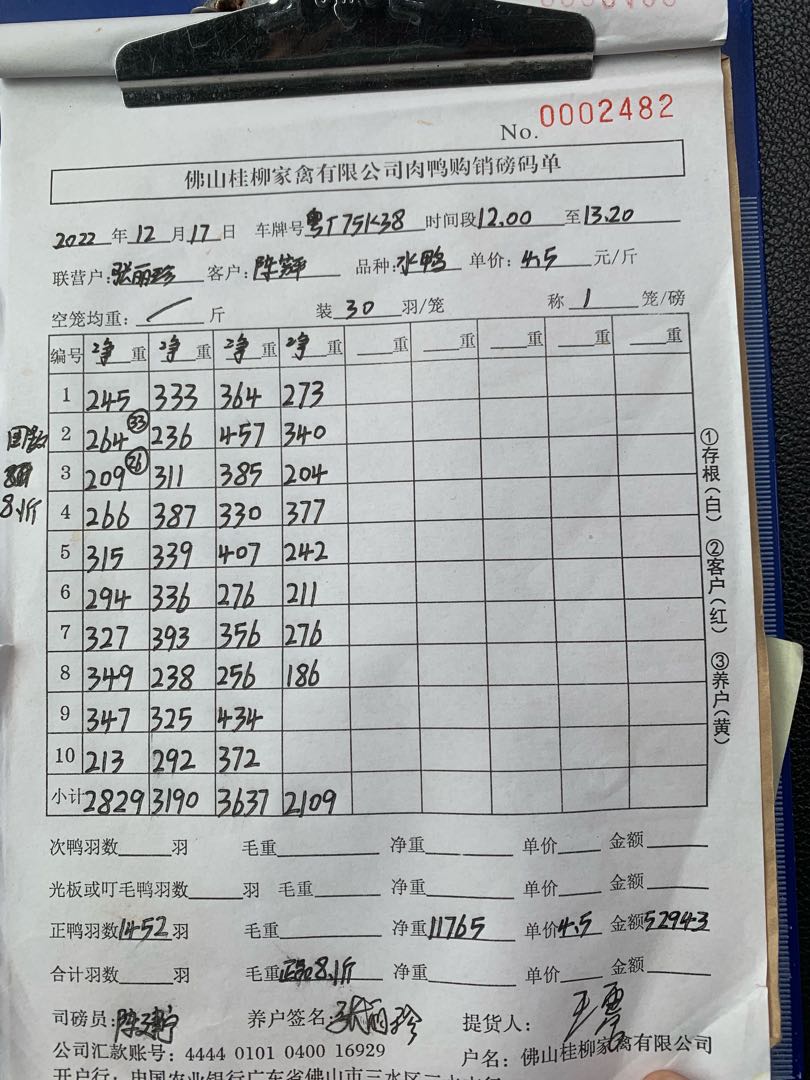 No. 0002482
佛山桂柳家禽有限公司肉鸭购销磅码单
2022 年 12 月 17 日 车牌号 粤T75K38 时间段 12.00 至 13.20
联营户: 张丽珍 客户: 陈 品种: 水鸭 单价: 4.5 元/斤
空笼均重: / 斤 装 30 羽/笼 称 1 笼/磅
编号 净重 净重 净重 净重 重 重 重 重 重
1 245 333 364 273
2 264 33 236 457 340
3 209 26 311 385 204
4 266 387 330 377
5 315 339 407 242
6 294 336 276 211
7 327 393 356 276
8 349 238 256 186
9 347 325 434
10 213 292 372
小计 2829 3190 3637 2109
8.1斤
①存根(白) ②客户(红) ③养户(黄)
次鸭羽数 羽 毛重 净重 单价 金额
光板或叮毛鸭羽数 羽 毛重 净重 单价 金额
正鸭羽数 1452 羽 毛重 净重 11765 单价 4.5 金额 52943
合计羽数 羽 毛重 8.1斤 净重 单价 金额
司磅员: 陈 养户签名: 张丽珍 提货人: 王
公司汇款账号: 4444 0101 0400 16929 户名: 佛山桂柳家禽有限公司
开户行: 中国农业银行广东省佛山市三水区